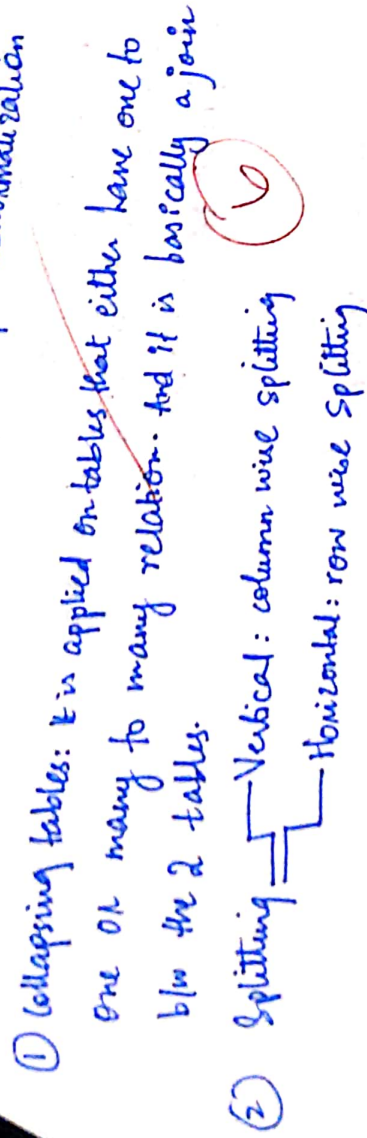 ① Collapsing tables: it is applied on tables that either have one to
one or many to many relation. And it is basically a join
b/w the 2 tables.
② Splitting Vertical: column wise splitting
Horizontal: row wise splitting
6